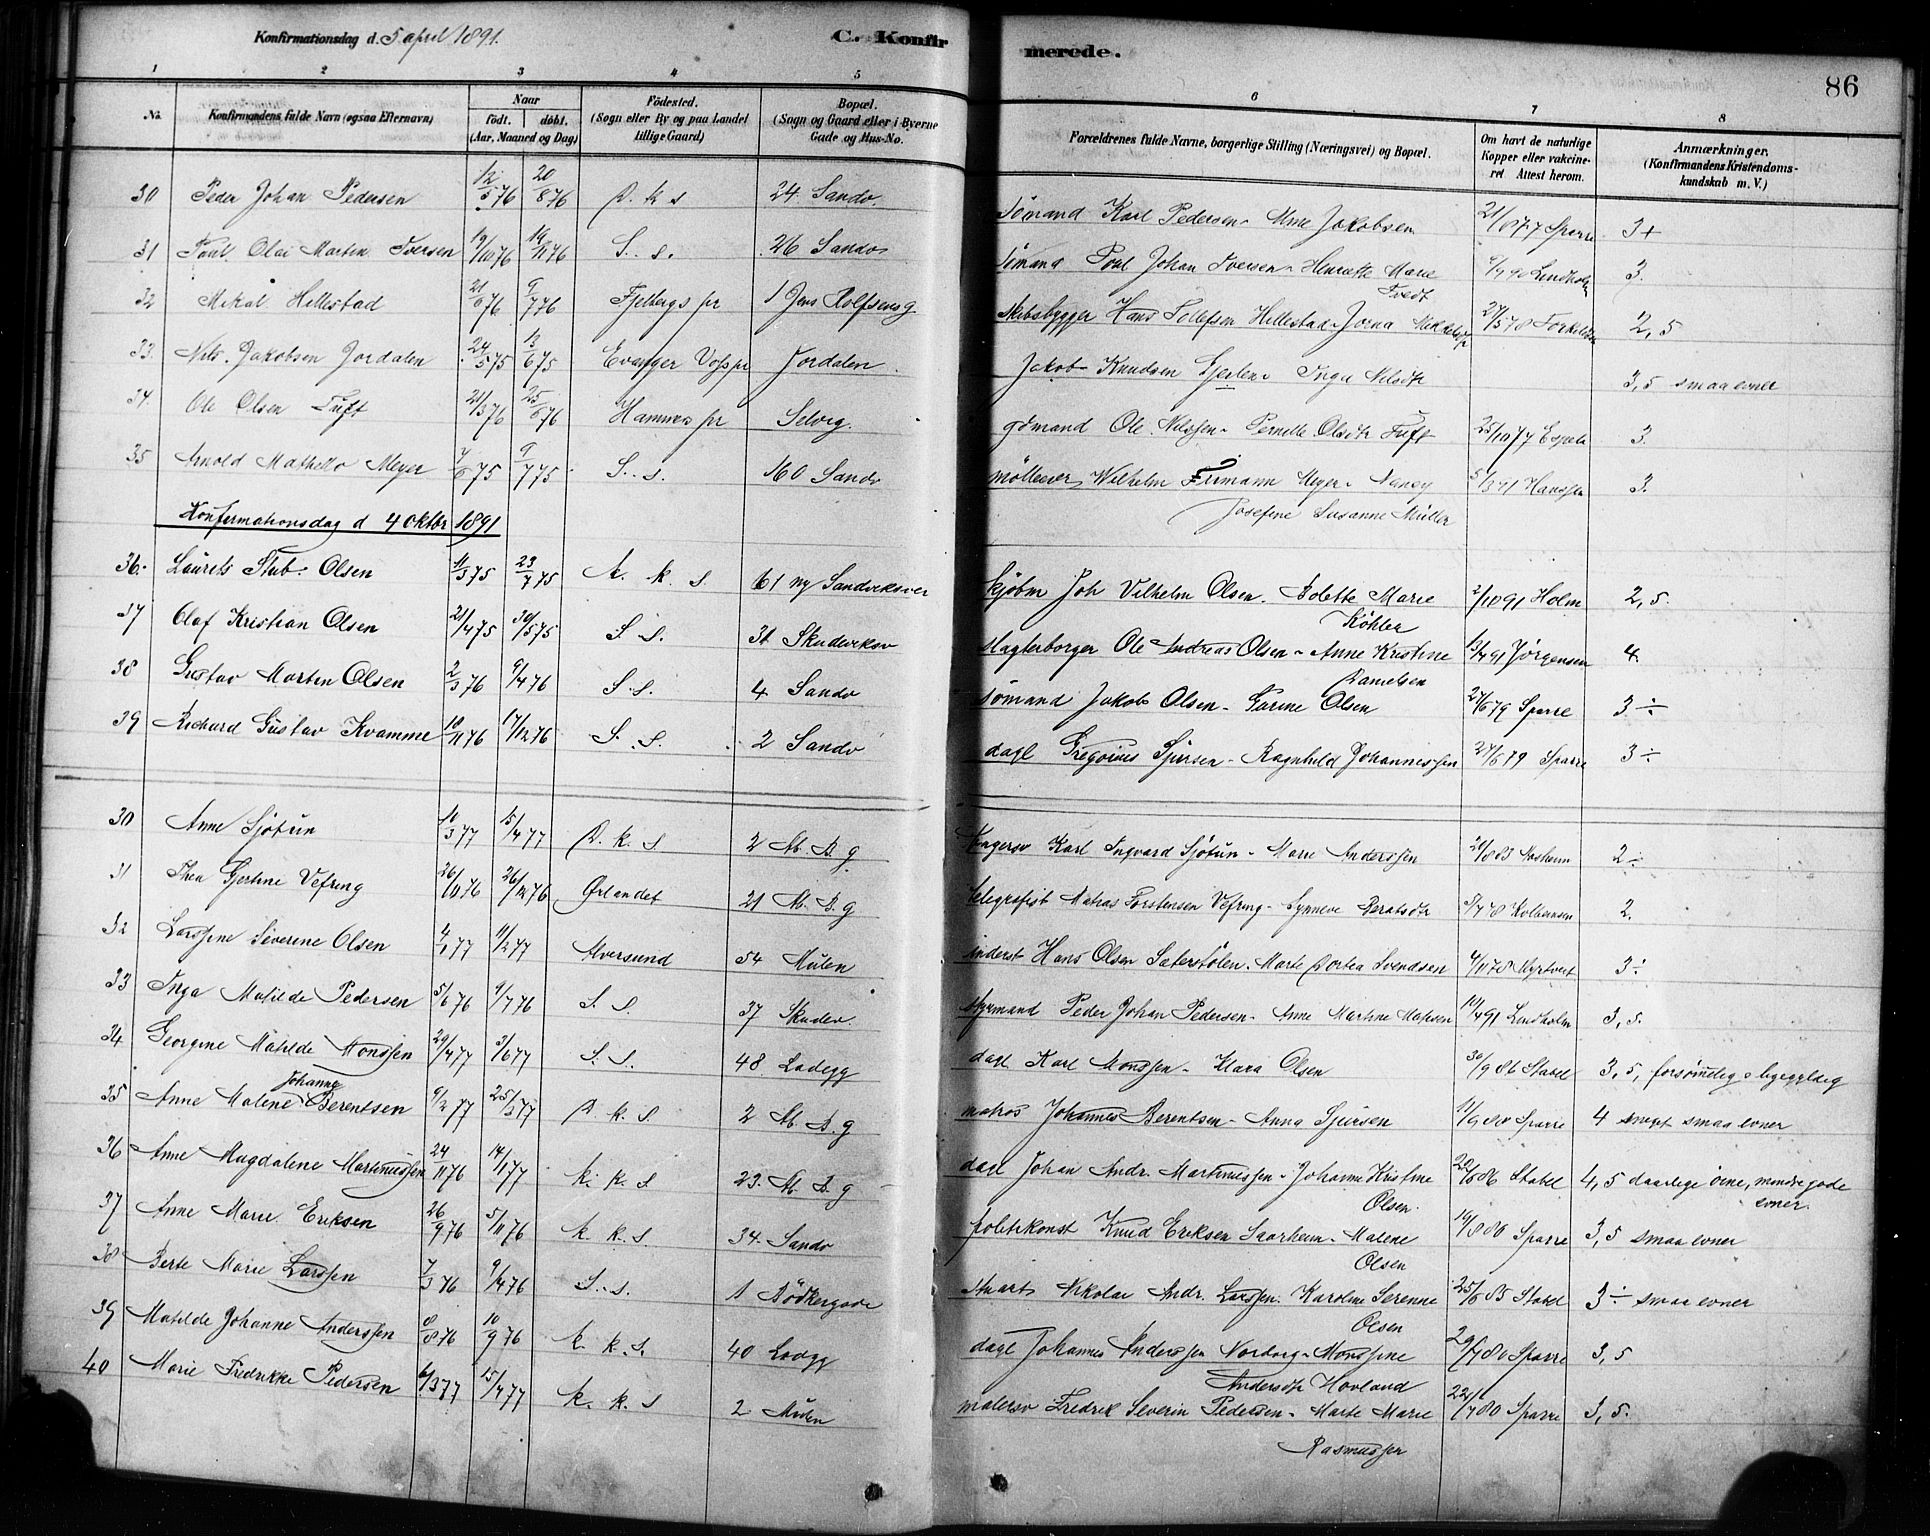 Konfirmationsdag d. 5 april 1891.
C. Konfirmerede.
86
1 2 3 4 5 6 7 8
No. Konfirmandens fulde Navn (ogsaa Efternavn) Naar født. døbt. (Aar, Maaned og Dag) Födested. (Sogn eller By og paa Landet tillige Gaard) Bopæl. (Sogn og Gaard eller i Byerne Gade og Hus-No. Forældrenes fulde Navne, borgerlige Stilling (Næringsvei) og Bopæl. Om havt de naturlige Kopper eller vakcineret. Attest herom. Anmærkninger. (Konfirmandens Kristendomskundskab m. V.)
30 Peder Johan Pedersen 12/5 76 20/8 76 D. k. s 24. Sandv. Sömand Karl Pedersen - Ane Jakobsen 21/6 77 Sparre 3+
31 Paul Olai Martin Iversen 19/10 76 19/11 76 S. s. 26 Sandv Sömand Poul Johan Iversen - Henrette Marie Tvedt Lindholm 3.
32 Mikal Hillestad 21/6 76 9/7 76 Fjelbergs pr 1 Jens Rolfsens g Skibsbygger Hans Tollefsen Hillestad - Jorna 27/5 78 Torkildsen 2,5
33. Nils Jakobsen Jordalen 24/5 75 13/6 75 Evanger Voss pr Jordalen Jakob Knudsen - Inga Nilsdtr 3,5 smaa evner
34. Ole Olsen Tuft 21/3 76 25/6 76 Hammers pr Selvig. gdmand Ole Nilssen - Pernille Olsdtr Tuft 25/10 77 Espela 3.
35 Arnold Mathello Meyer 7/6 75 9/7 75 S. s. 160 Sandv möllesv Wilhelm Firmann Meyer - Nancy Josefine Susanne Müller Hanssen 3.
Konfirmationsdag d 4 oktbr 1891
36. Laurits Stub Olsen 11/3 75 23/7 75 k. k. s 61 ny Sandviksvei kjøbm Joh Vilhelm Olsen - Bolette Marie Köhler 2/10 91 Holm 2,5.
37 Olaf Kristian Olsen 21/4 75 30/5 75 S. s. 31 Skudeviksv slagterborger Ole Andreas Olsen - Anne Kristine Danielsen 13/4 91 Jörgensen 4.
38 Gustav Martin Olsen 2/3 76 9/4 76 S. S. 4 Sandv sömand Jakob Olsen - Karine Olsen 27/6 79 Sparre 3 ÷
39 Richard Gustav Kvamme 10/11 76 17/12 76 S. S. 2 Sandv dagl Gregorius Sjursen - Ragnhild Johannessen 27/6 79 Sparre 3 ÷
30 Anne Sjötun 10/3 77 15/4 77 D. k. s 2 M. B. g Karl Ingvard Sjötun - Marie Anderssen 21/8 83 2 ÷
31 Thea Gjertine Vefring 26/11 76 26/12 76 Ørlandet 21 M. B. g telegrafist Matias Torstensen Vefring - Synneve Beratsdtr 5/4 78 Kolbensen 2.
32 Larsine Severine Olsen 4/1 77 11/2 77 Alversund 54 Mulen inderst Hans Olsen Sæterstölen - Marte Dortea Svendsen 4/11 78 3 ÷
33 Inga Matilde Pedersen 5/6 76 9/7 76 S. S. 37 Skudev. styrmand Peder Johan Pedersen - Anne Martine 10/4 91 Lindholm 3,5.
34 Georgine Matilde Monssen 29/4 77 3/6 77 S. S. 48 Ladegg dagl. Karl Monssen - Klara Olsen 30/9 86 Stabel 3,5, forsømelig
35 Anne Malene Johanne Berentsen 9/2 77 25/3 77 D. k. S. 2 M. B. g matros Johannes Berentsen - Anna Sjursen 11/9 80 Sparre 4 smaa evner
36 Anne Magdalene Martinussen 24/11 76 14/1 77 k. k. S. 23. M. B. g dagl Johan Andr. Martinussen - Johanne Kristine Olsen. 20/8 86 Stabel 4,5 daarlige öine, mindre gode evner.
37 Anne Marie Eriksen 26/9 76 5/11 76 k. k. S 34. Sandv politikonst Knud Eriksen Saarheim - Malene Olsen 19/8 80 Sparre 3,5 smaa evner
38 Berte Marie Larssen 7/3 76 9/4 76 S. S. 1 Bödkergade Nikolai Andr. Larssen - Karoline Serenne Olsen 25/6 85 Stabel 3 ÷ smaa evner
39 Matilde Johanne Anderssen 8/8 76 10/9 76 k. k. S. 40 Ladegg dagl Johannes Anderssen Nordvig - Monsine Andersdtr Hovland 29/7 80 Sparre 3,5
40 Marie Fredrikke Pedersen 6/3 77 15/4 77 k. k. S 2 Mulen malersv Fredrik Severin Pedersen - Marte Marie Rasmussen 22/7 80 Sparre 3,5.